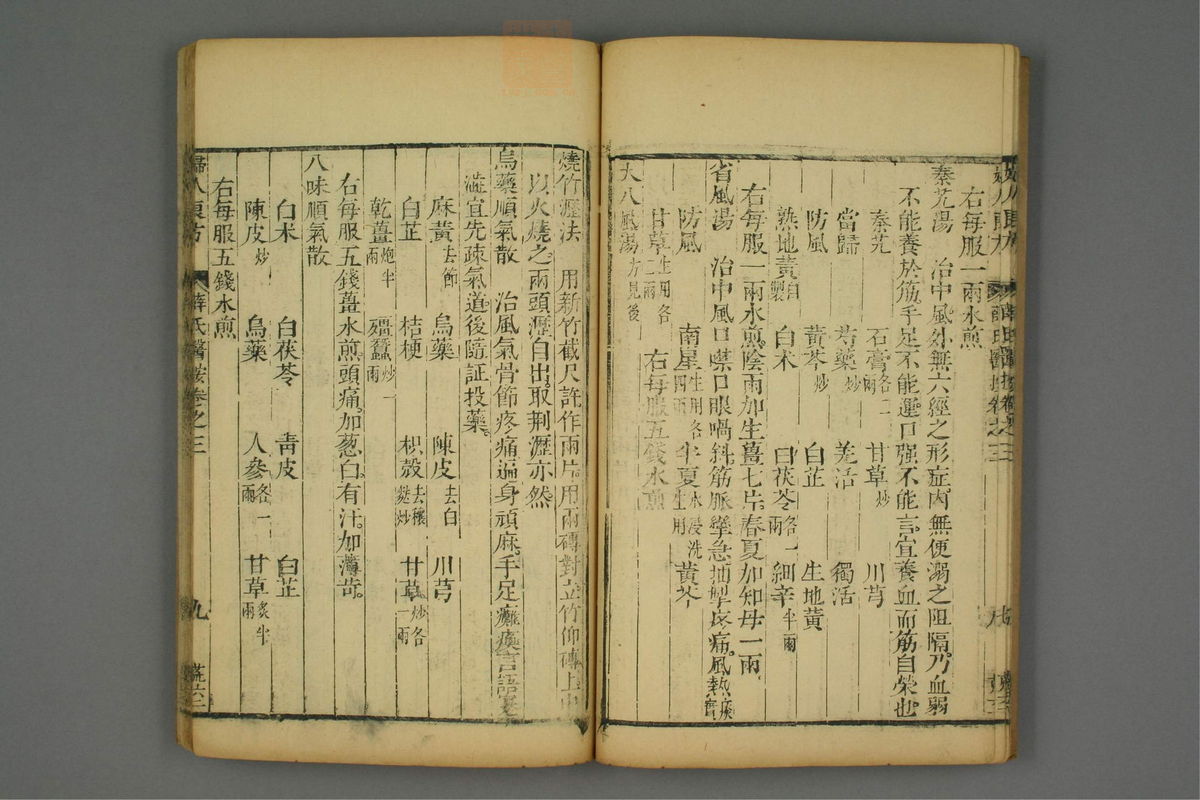 右每服一兩水煎
秦艽湯 治中風外無六經之形症內無便溺之阻隔乃血弱
不能養於筋手足不能運口强不能言宜養血而筋自榮也
秦艽 石膏各二兩 甘草炒 川芎
當歸 芍藥炒 羌活 獨活
防風 黃芩炒 白芷 生地黃
熟地黃自製 白术 白茯苓各一兩 細辛半兩
右每服一兩水煎陰雨加生薑七片春夏加知母一兩
省風湯 治中風口噤口眼喎斜筋脈攣急抽掣疼痛風熱痰實
防風 南星生用各四兩 半夏水浸洗生用 黃芩
甘草生用各二兩 右每服五錢水煎
大八風湯方見後
燒竹瀝法 用新竹截尺許作兩片用兩磚對立竹仰磚上
以火燒之兩頭瀝自出取荆瀝亦然
烏藥順氣散 治風氣骨節疼痛遍身頑麻手足癱瘓言語蹇
澁宜先疎氣道後隨証投藥
麻黃去節 烏藥 陳皮去白 川芎
白芷 桔梗 枳殼去穰麩炒 甘草炒各一兩
乾薑炮半兩 殭蠶炒一兩
右每服五錢薑水煎頭痛加葱白有汗加薄苛
八味順氣散
白术 白茯苓 靑皮 白芷
陳皮炒 烏藥 人參各一兩 甘草炙半兩
右每服五錢水煎
婦人良方 薛氏醫按卷之三 九